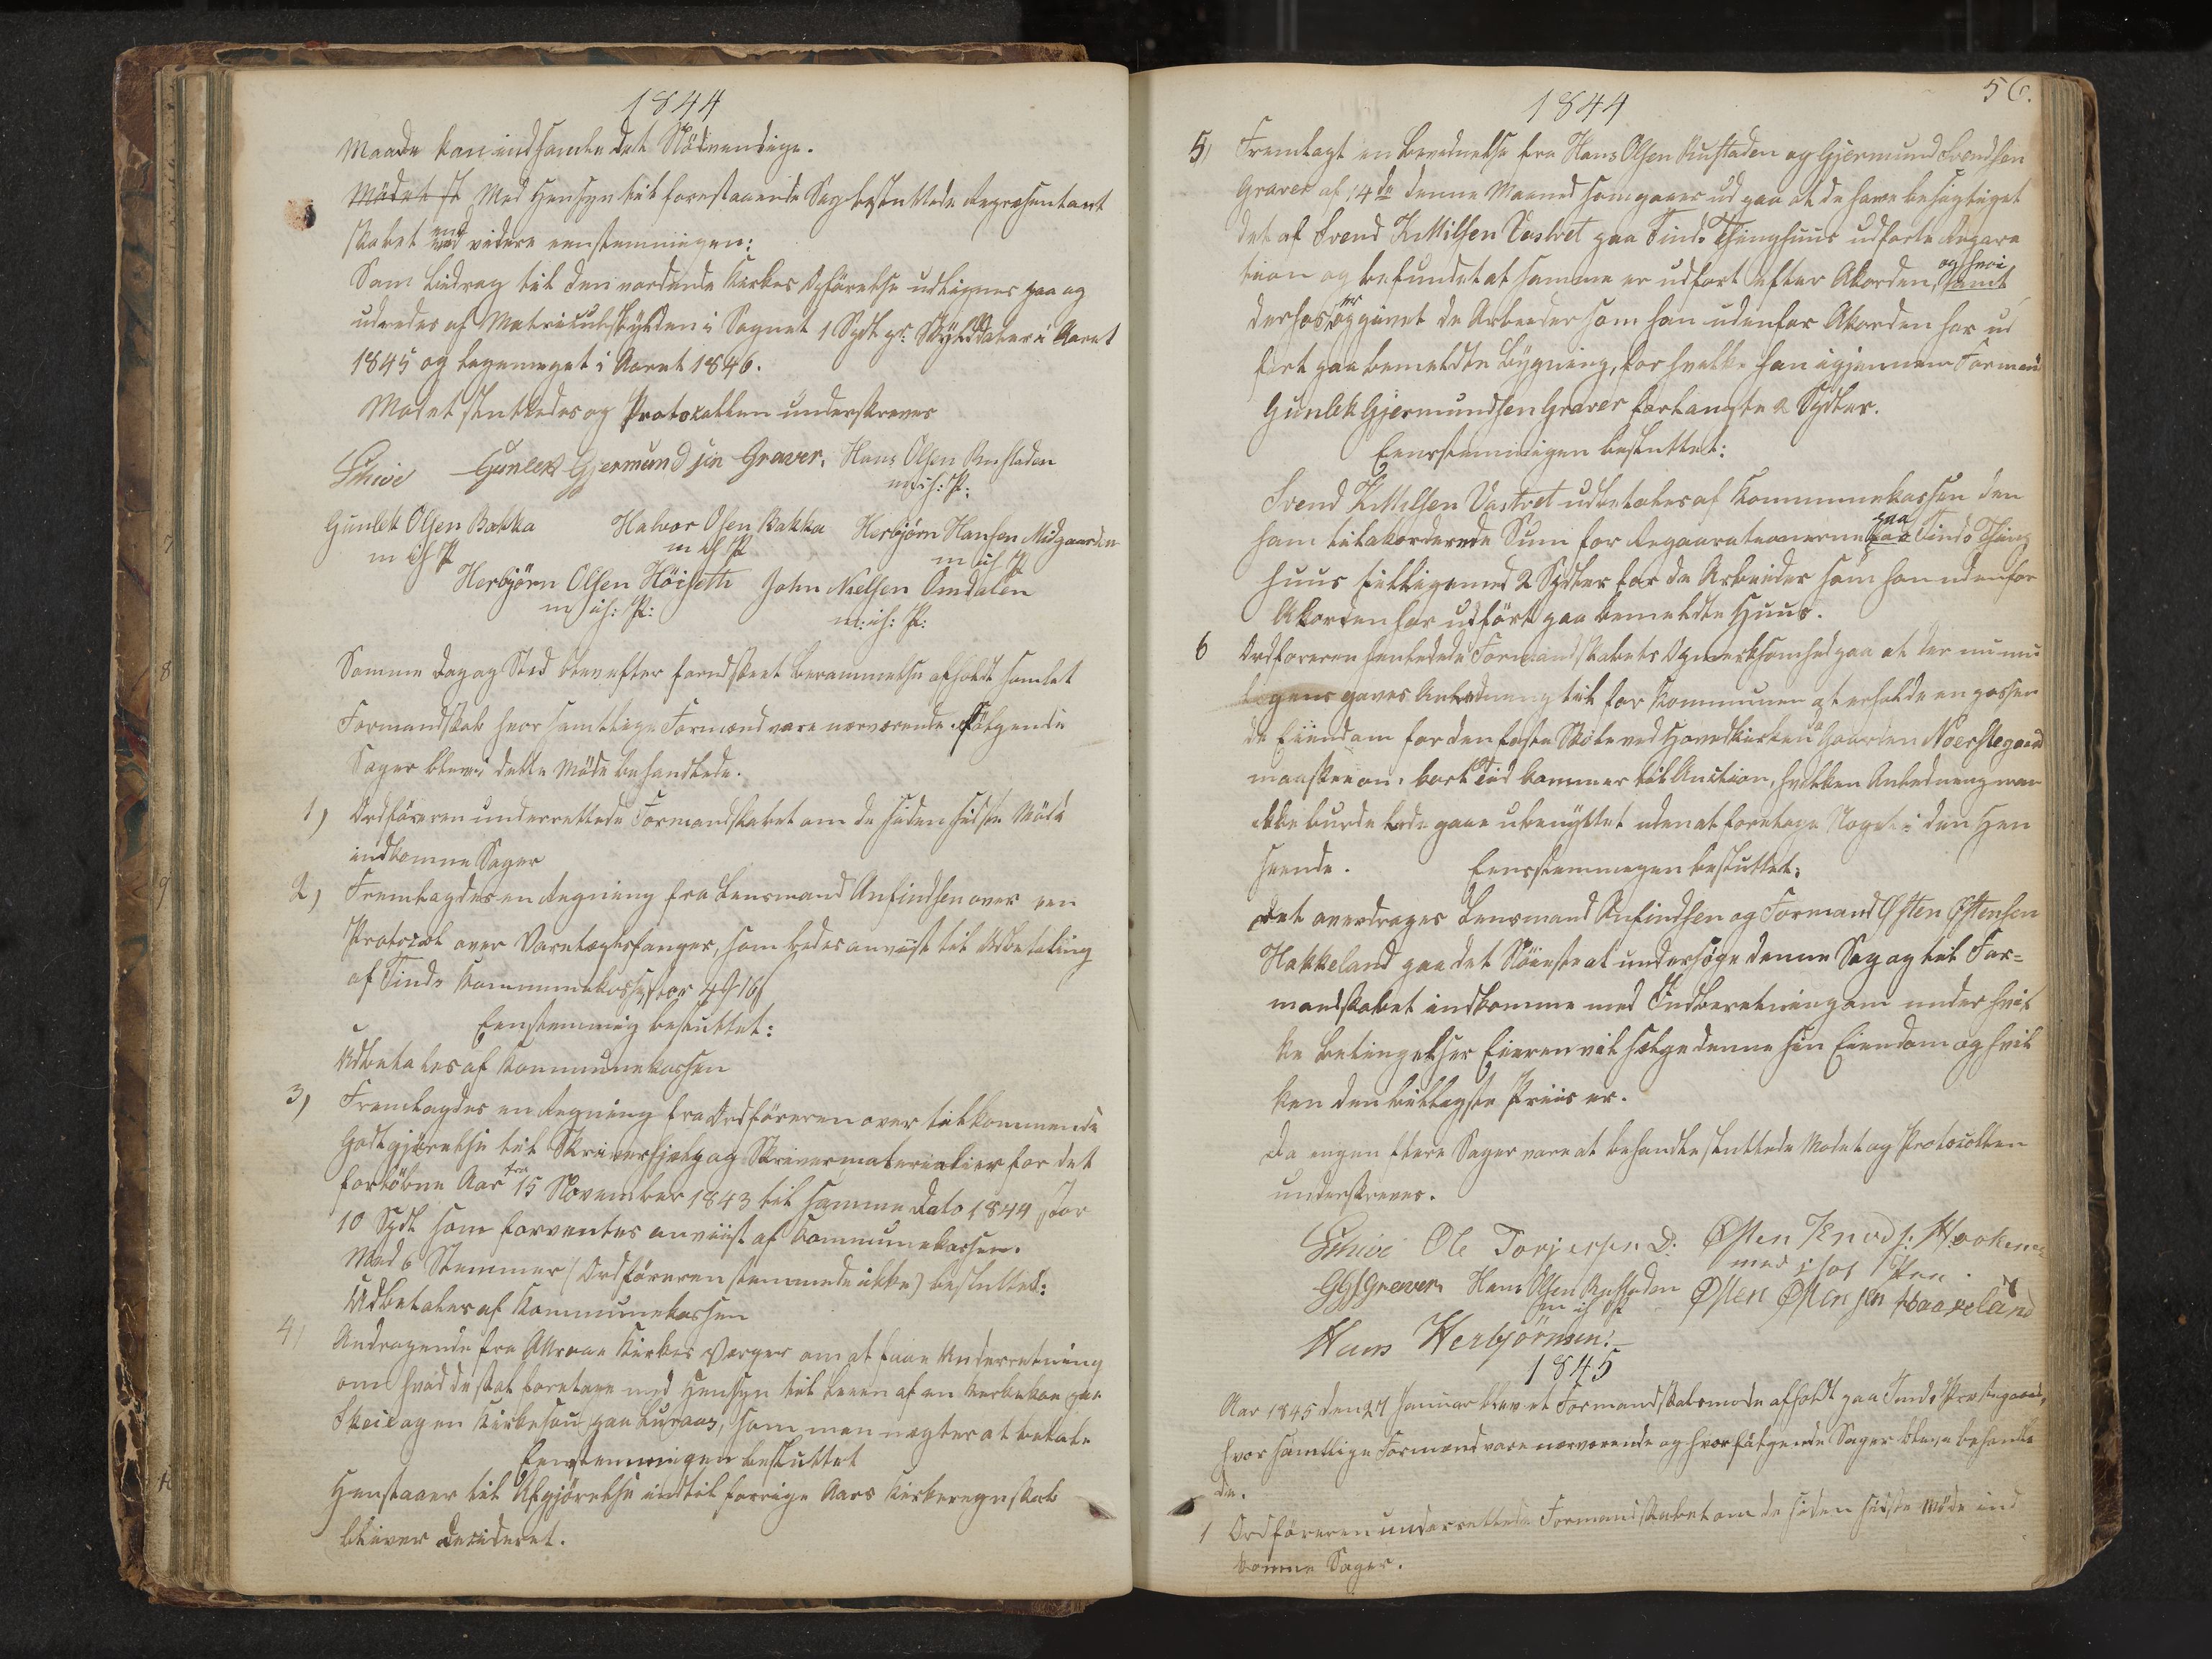 1844
Maade kan indsamle det Nödvendige.
Mödet sl Med Hensyn til forestaaende Sag besluttede Repræsentant
skabet end videre eenstemmigen:
Som Bidrag til den vordende Kirkes Opförelse udlignes paa og
udredes af Matriculskylden i Sognet 1 Spdl pr: Skylddaler i Aaret
1845 og ligemeget i Aaret 1846.
Mödet sluttedes og Protocollen underskreves
Schive Gunlek Gjermundsen Graver. Hans Olsen Rustaden
m: i h: P:
Gunlek Olsen Bakka Halvor Olsen Bakka Herbjörn Hansen Midgaarden
m i h P m i h P m i h P
Herbjörn Olsen Höiseth John Nielsen Omdalen
m ih: P: m: ih: P:
Samme Dag og Sted blev efter forudskeet Berammelse afholdt samlet
Formandskab hvor samtlige Formænd vare nærværende. Fölgende
Sager bleve i dette Möde behandlede.
1) Ordföreren underrettede Formandskabet om de siden sidste Möde
indkomne Sager
2) Fremlagdes en Regning fra Lensmand Anfindsen over en
Protocol over Varetægtsfanger, som bedes anviist til Udbetaling
af Tinds Kommunekasse, stor
Eenstemmig besluttet:
Udbetales af Kommunekassen
3) Fremlagdes en Regning fra Ordföreren over tilkommende
Godtgjörelse til Skriverhjælp og Skrivermaterialier for det
forlöbne Aar fra 15 November 1843 til samme Dato 1844, stor
10 Spdl som forventes anviist af Kommunekassen.
Med 6 Stemmer (Ordföreren stemmede ikke) besluttet:
Udbetales af Kommunekassen
4) Andragende fra Attraae Kirkes Værger om at faae Underretning
om hvad de skal foretage med Hensyn til Leien af en Kirkekoe paa
Skeie og en Kirkesou paa Luraas, som man nægter at betale
Eenstemmigen besluttet
Henstaaer til Afgjörelse indtil forrige Aars Kirkeregnskab
bliver decideret.
56.
1844
5) Fremlagt en Bevidnelse fra Hans Olsen Rustaden og Gjermund Svendsen
Graver af 14de denne Maaned som gaaer ud paa at de have besigtiget
det af Svend Kittilsen Vastvet paa Tinds Thinghuus udförte Repara
tion og befundet at samme er udfört efter Akorden, og hvori samt
derhos er opgivet de Arbeider som han udenfor Akorden har ud
fört paa bemeldte Bygning, for hvilke han igjennem Formand
Gunlek Gjermundsen Graver forlangte 2 Spdler.
Eensstemmigen besluttet:
Svend Kittilsen Vastvet udbetales af Kommunekassen den
ham tilakorderede Sum for Reparationerne paa Tinds Thing
huus tilligemed 2 Spdler for de Arbeider som han udenfor
Akorden har udfört paa bemeldte Huus.
6 Ordföreren henledede Formandskabets Opmærksomhed paa at der nu mu
ligens gaves Anledning til for Kommunen at erholde en passen
de Eiendom for den faste Skole ved Hovedkirken, da Gaarden Noerstegaard
maaskee om kort Tid kommer til Auction, hvilken Anledning man
ikke burde lade gaae ubenyttet uden at foretage Noget i den Hen
seende. Eensstemmigen besluttet:
Det overdrages Lensmand Anfindsen og Formand Østen Østensen
Hakkeland paa det Nöieste at undersöge denne Sag og til For=
mandskabet indkomme med Indberetning om under hvil
ke Betingelser Eieren vil sælge denne sin Eiendom og hvil
ken den billigste Priis er.
Da ingen flere Sager vare at behandle sluttede Mödet og Protocollen
underskreves.
Schive Ole Torjersen D: Østen Knuds:
med i hol Pen.
GGsGraver Hans Olsen Rustaden Østen Østensen Haakeland
m ih P
Hans Herbjörnsen:
1845
Aar 1845 den 27 Januar blev et Formandskabsmöde afholdt paa Tinds Præstegaard,
hvor samtlige Formænd vare nærværende og hvor fölgende Sager bleve behandle
de.
1 Ordföreren underrettede Formandskabet om de siden sidste Möde ind
komne Sager.